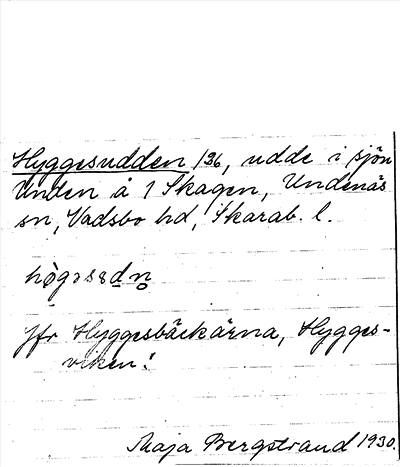 Hyggesudden 136, udde i sjön
Unden å 1 Skagen, Undenäs
sn, Vadsbo hd, Skarab. l.
Jfr Hyggesbäckärna, Hygges-
viken!
Maja Bergstrand 1930.